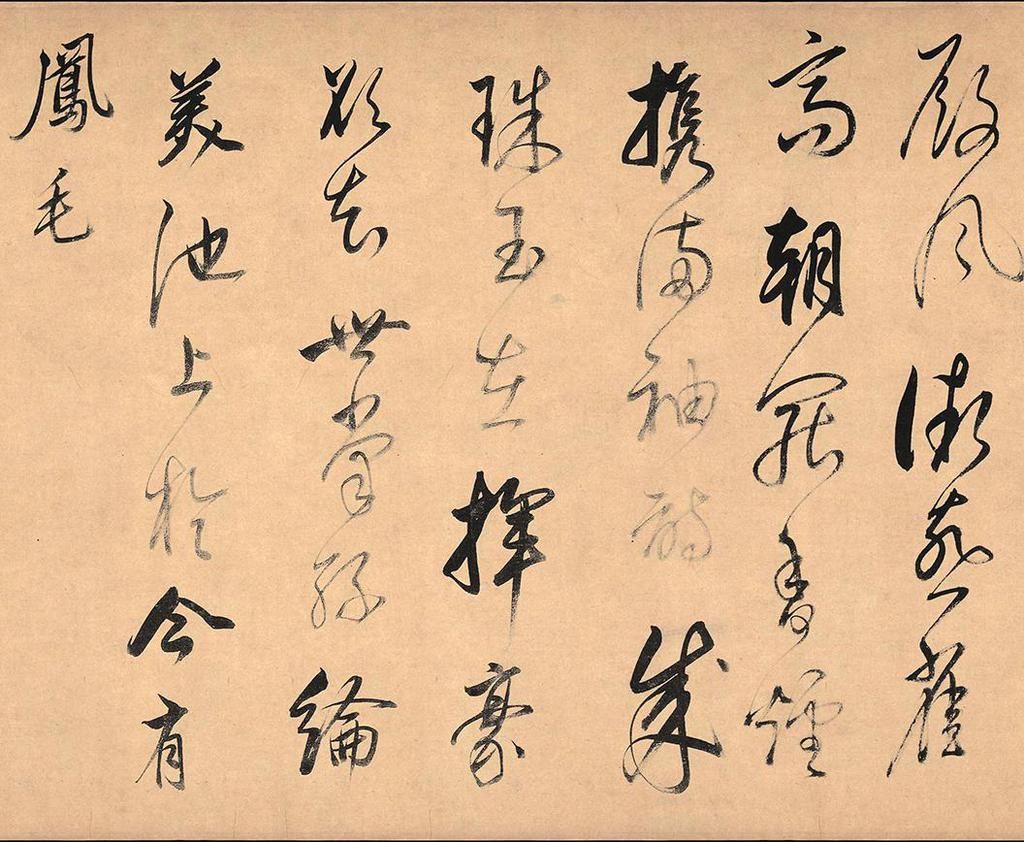 殿風微燕雀
高朝罷香煙
携滿袖詩成
珠玉在揮豪
欲知世掌絲綸
美池上於今有
鳳毛